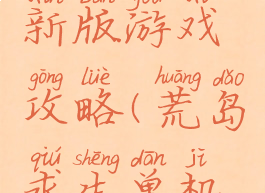 xīn bǎn yóu xì
新版游戏
gōng lüè huāng dǎo
攻略(荒岛
qiú shēng dān jī
求生单机